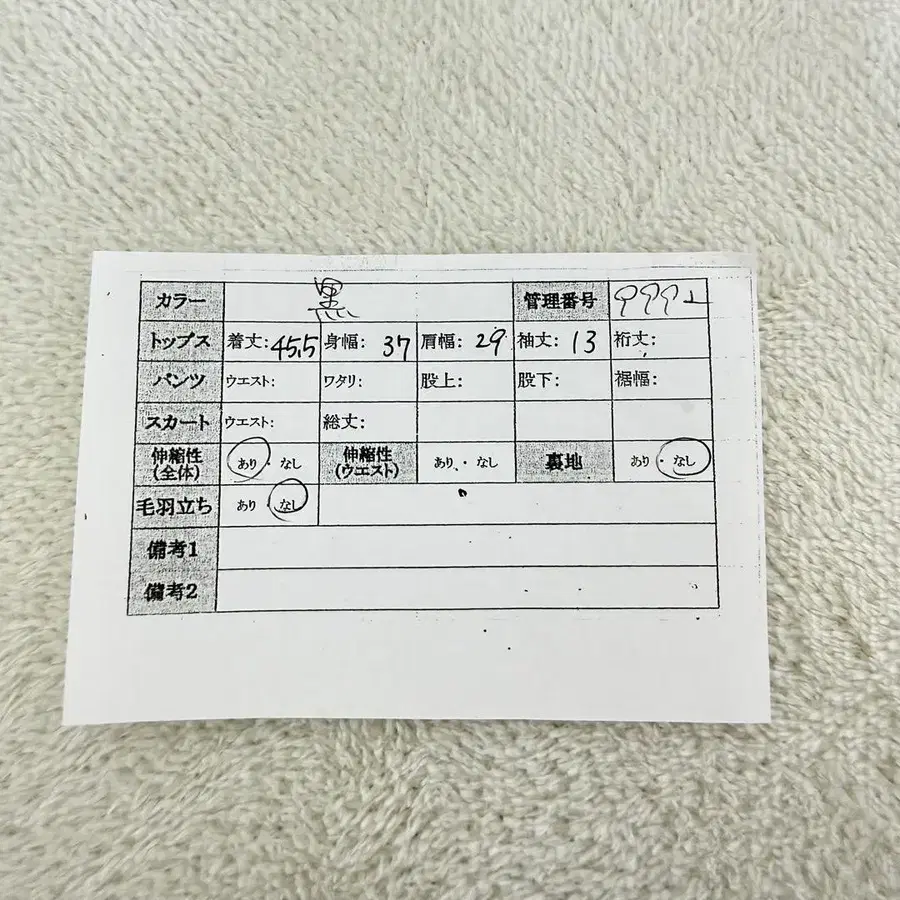 カラー 黒 管理番号
トップス 着丈: 45.5 身幅: 37 肩幅: 29 袖丈: 13 裄丈:
パンツ ウエスト: ワタリ: 股上: 股下: 裾幅:
スカート ウエスト: 総丈:
伸縮性(全体) あり・なし 伸縮性(ウエスト) あり・なし 裏地 あり・なし
毛羽立ち あり・なし
備考1
備考2